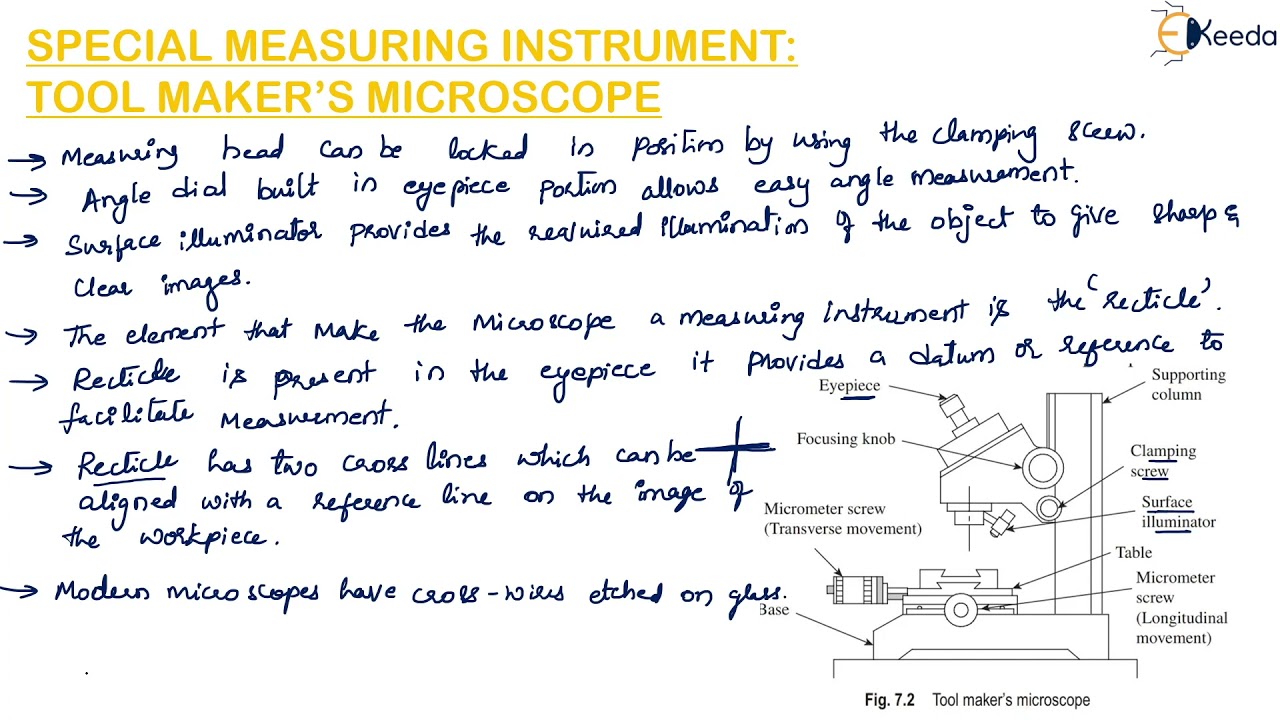 SPECIAL MEASURING INSTRUMENT:
TOOL MAKER'S MICROSCOPE
EKeeda
→ Measuring head can be locked in position by using the clamping screw.
→ Angle dial built in eyepiece portion allows easy angle measurement.
→ Surface illuminator provides the required illumination of the object to give sharp &
clear images.
→ The element that make the microscope a measuring instrument is the 'recticle'.
→ Recticle is present in the eyepiece it provides a datum or reference to
facilitate measurement.
→ Recticle has two cross lines which can be
aligned with a reference line on the image of
the workpiece.
→ Modern microscopes have cross-wires etched on glass.
Eyepiece
Supporting
column
Focusing knob
Clamping
screw
Micrometer screw
(Transverse movement)
Surface
illuminator
Table
Micrometer
screw
(Longitudinal
movement)
Base
Fig. 7.2 Tool maker's microscope